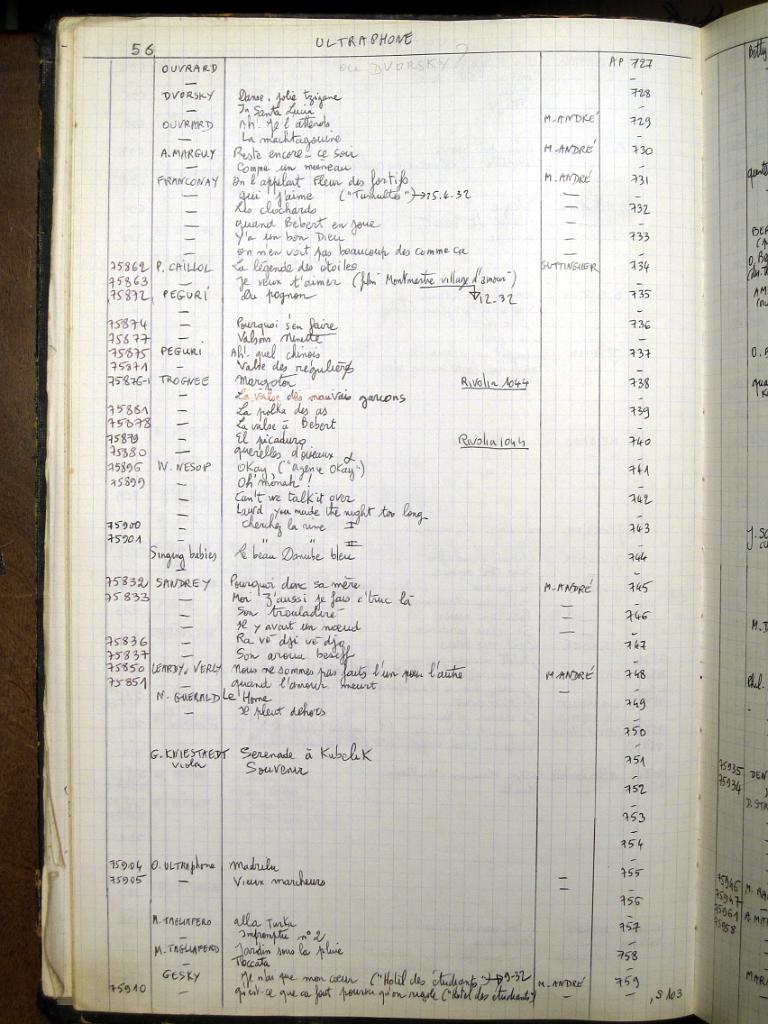 56 ULTRAPHONE
OUVRARD ou DVORSKY? AP 727
—
DVORSKY Danse, jolie tzigane 728
— In Santa Lucia —
OUVRARD Ah! Je l'attends M. ANDRÉ 729
— La machtagouine —
A. MARGUY Reste encore ce soir M. ANDRÉ 730
— Comme un moineau —
FRANCONAY On l'appelait Fleur des fortifs M. ANDRÉ 731
— qui j'aime ("Tumultes") → 25.4.32 — —
— Les clochards — 732
— quand Bébert en joue — —
— Y'a un bon Dieu — 733
— on n'en voit pas beaucoup des comme ca — —
75862 P. CAILLOL La légende des étoiles GUTTINGUER 734
75863 — Je veux t'aimer (film "Montmartre village d'amour") —
75872 PEGURI Du pognon 12-32 735
— —
75874 — Pourquoi s'en faire 736
75877 — Valsons Ninette —
75875 PEGURI Ah! quel chinois 737
75871 — Valse des réguliers —
75876-1 TROGNEE Margoton Rivolia 1044 738
— La valse des mauvais garçons —
75881 — La polka des as 739
75878 — La valse à Bébert —
75879 — El picaduro Rivolia 1044 740
75880 — querelles d'oiseaux —
75896 W. NESOP Okay ("agence Okay") 741
75899 — Oh! mônah! —
— Can't we talk it over 742
— Lawd you made the night too long —
75900 — Cherchez la rime I 743
75901 — " " II —
Singing babies Le beau Danube bleu 744
—
75832 SANDREY Pourquoi donc sa mère M. ANDRÉ 745
75833 — Moi z'aussi je fais c'truc là — —
— Son trouladire — 746
— Il y avait un nœud — —
75836 — Ra vô dji vô djo 747
75837 — Son arouu beseff —
75850 LEARDY, VERLY Nous ne sommes pas faits l'un pour l'autre M. ANDRÉ 748
75851 — quand l'amour meurt — —
N. GUERALD Le Home 749
— Il pleut dehors —
750
—
G. KNIESTAEDT Serenade à KubeliK 751
viola Souvenir —
752
—
753
—
754
—
75904 O. ULTRAphone Madrilu 755
75905 — Vieux marcheurs — —
756
—
M. TAGLIAFERO alla Turka 757
— Impromptu n° 2 —
M. TAGLIAFERO Jardin sous la pluie 758
— Toccata —
GESKY Je n'ai que mon cœur ("Hotel des étudiants") → 9-32 M. ANDRÉ 759
75910 — qu'est-ce que ca fait pourvu qu'on rigole ("Hotel des étudiants") — — , S 103
75935 DEN
75934
D. STR
75946
75947
75961
75958